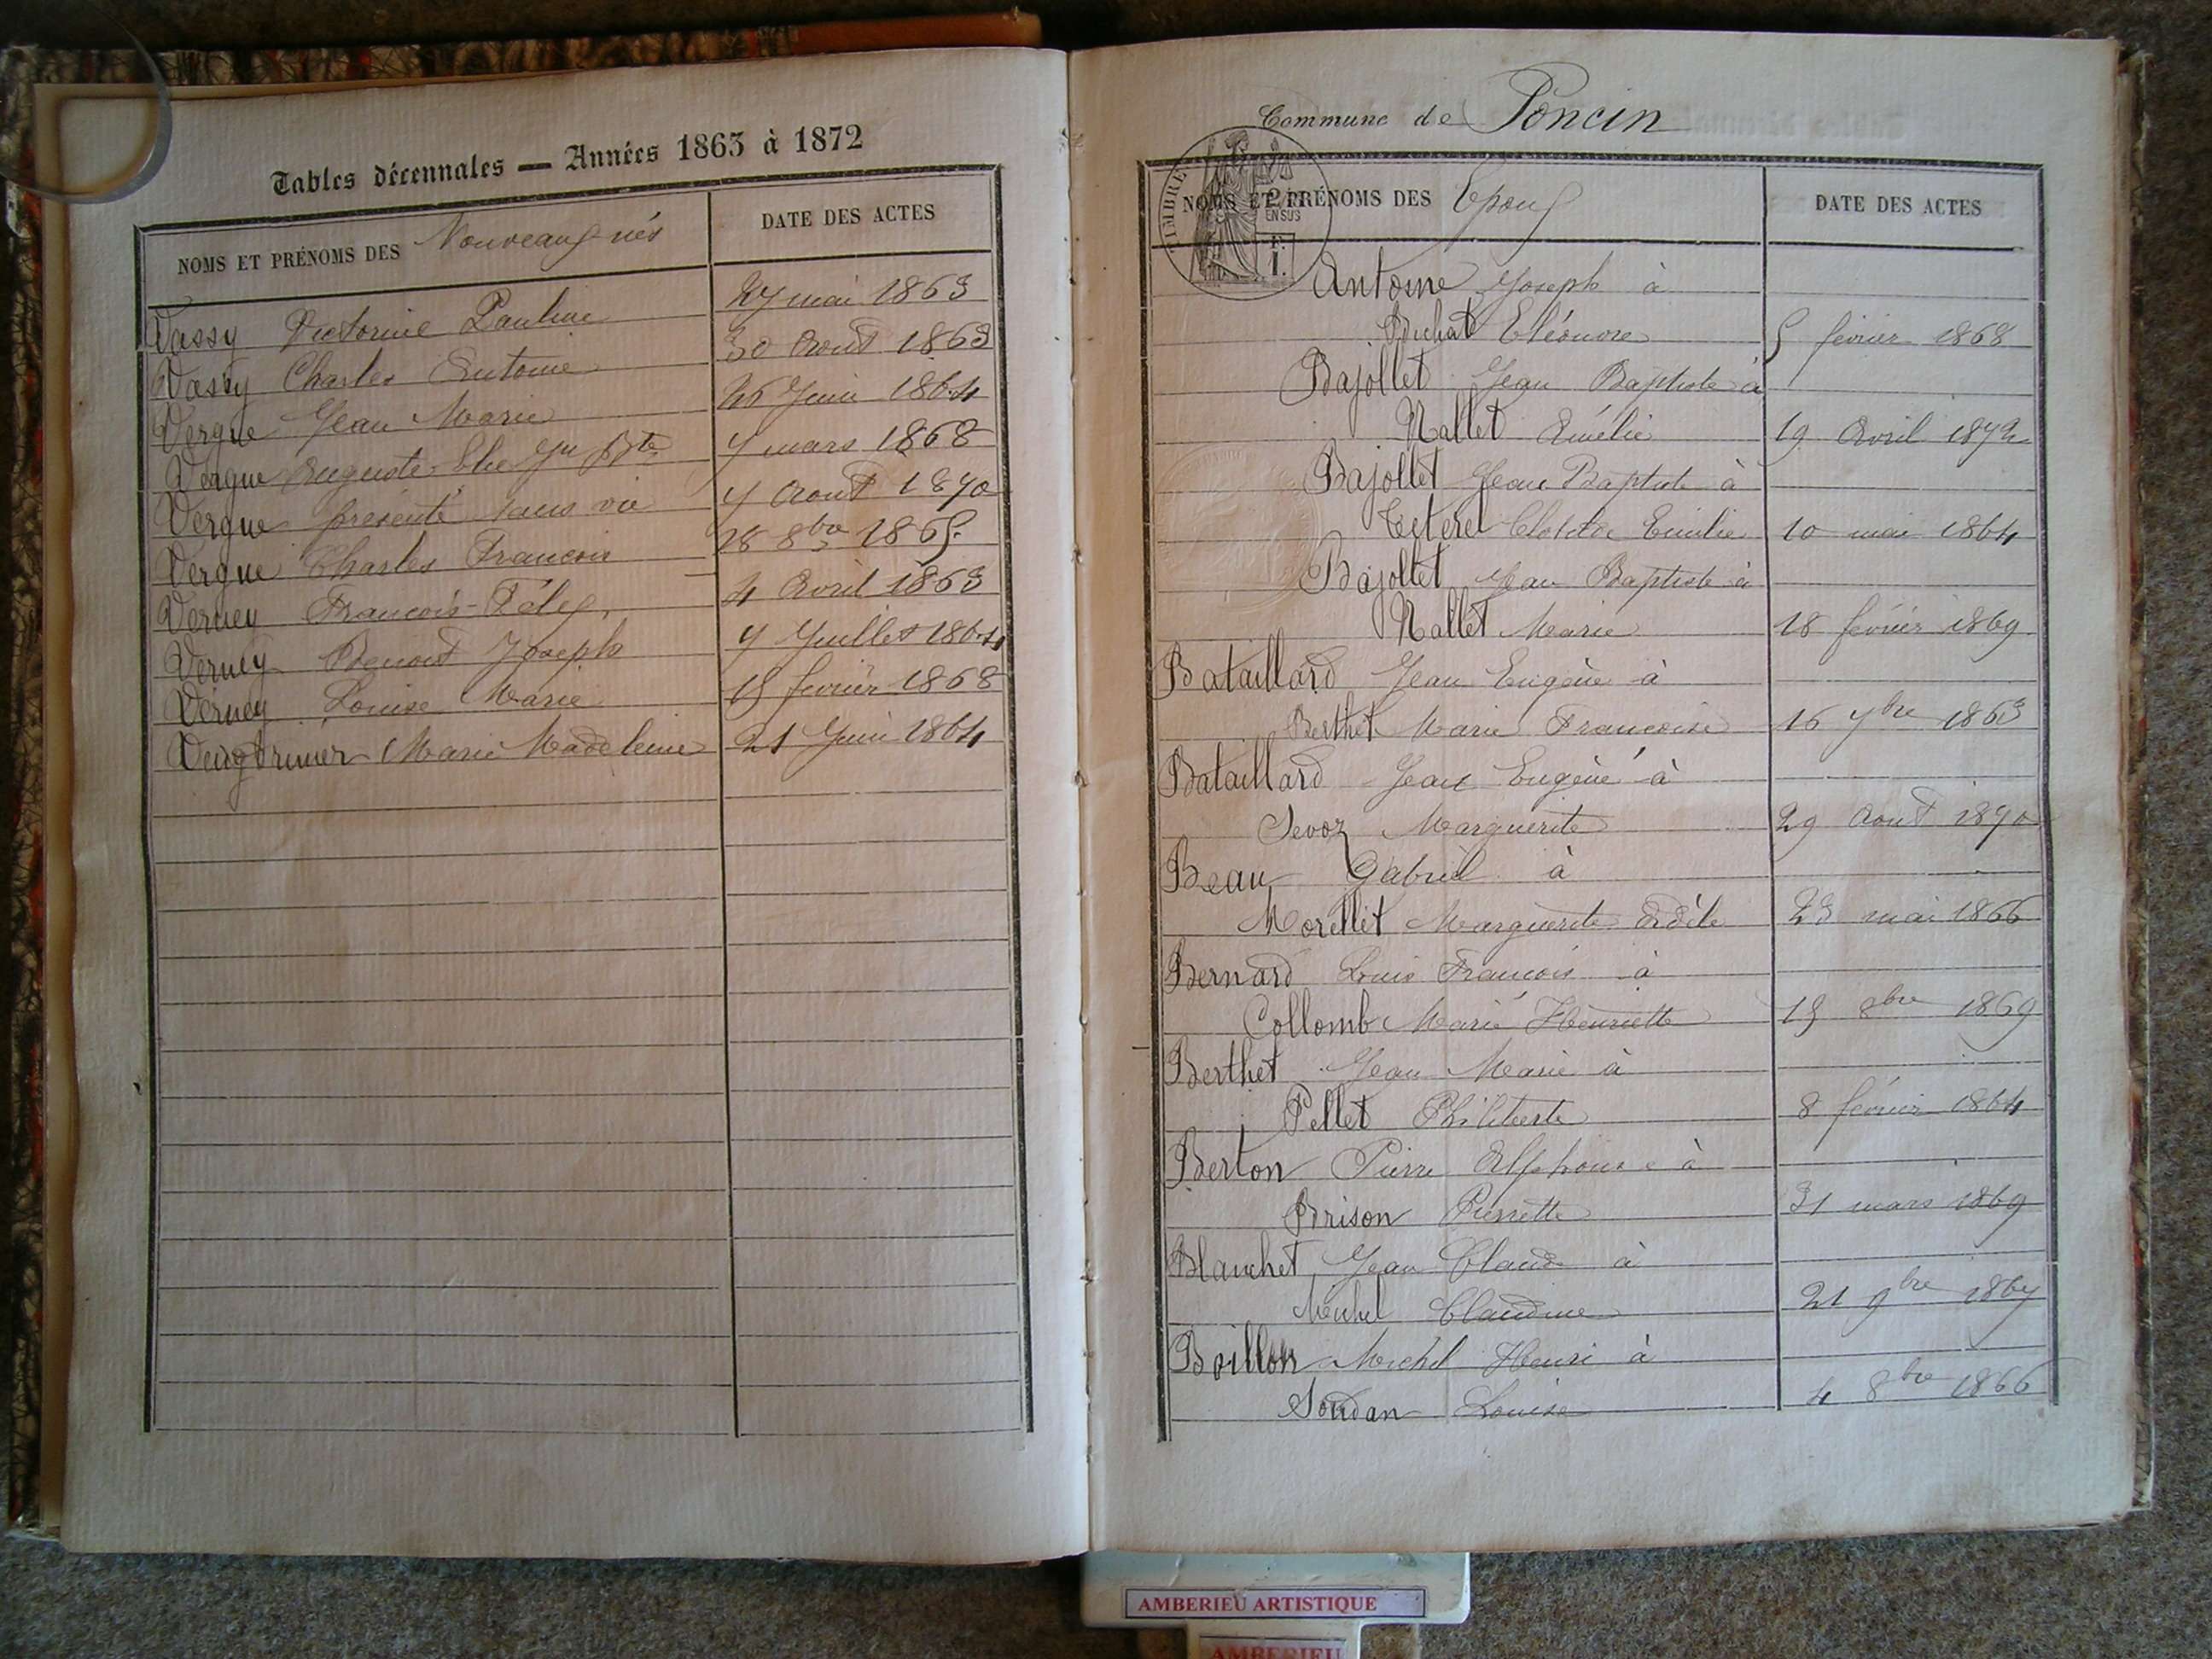 Tables décennales — Années 1863 à 1872
NOMS ET PRÉNOMS DES Nouveaux-nés DATE DES ACTES
Vassy Victorine Pauline 27 mai 1863
Vassy Charles Antoine 30 Aout 1863
Vergue Jean Marie 26 Juin 1864
Vergue Auguste Elie Jn Bte 7 mars 1868
Vergue présenté sans vie 7 Aout 1870
Vergue Charles François 28 8bre 1865
Verney François-Félix 4 Avril 1863
Verney Benoit Joseph 7 Juillet 1864
Verney Louise Marie 15 février 1868
Marie Madeleine 21 Juin 1864
Commune de Poncin
TIMBRE
2/10 EN SUS
F. 1.
NOMS ET PRÉNOMS DES Epoux DATE DES ACTES
Antoine Joseph à
Buchat Eléonore 5 février 1868
Bajollet Jean Baptiste à
Nallet Amélie 19 Avril 1872
Bajollet Jean Baptiste à
Teterel Clotilde Emilie 10 mai 1864
Bajollet Jean Baptiste à
Nallet Marie 18 février 1869
Bataillard Jean Eugène à
Berthet Marie Françoise 16 7bre 1863
Bataillard Jean Eugène à
Sevoz Marguerite 29 Aout 1870
Beau Gabriel à
Morellet Marguerite Adèle 23 mai 1866
Bernard Louis François à
Collomb Marie Henriette 15 8bre 1869
Berthet Jean Marie à
Pellet Philiberte 8 février 1864
Berton Pierre Alphonse à
Brison Pierrette 31 mars 1869
Blanchet Jean Claude à
Michel Claudine 21 9bre 1867
Boillon Michel Henri à
Soudan Louise 4 8bre 1866
AMBERIEU ARTISTIQUE
AMBERIEU